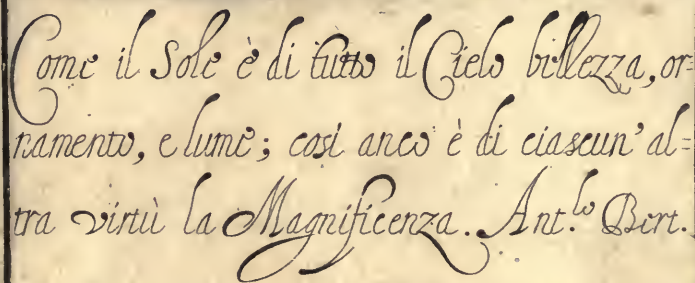 Come il Sole è di tutto il Cielo bellezza, or=
namento, e lume; così anco è di ciascun' al=
tra virtù la Magnificenza. Ant.lo Bert.